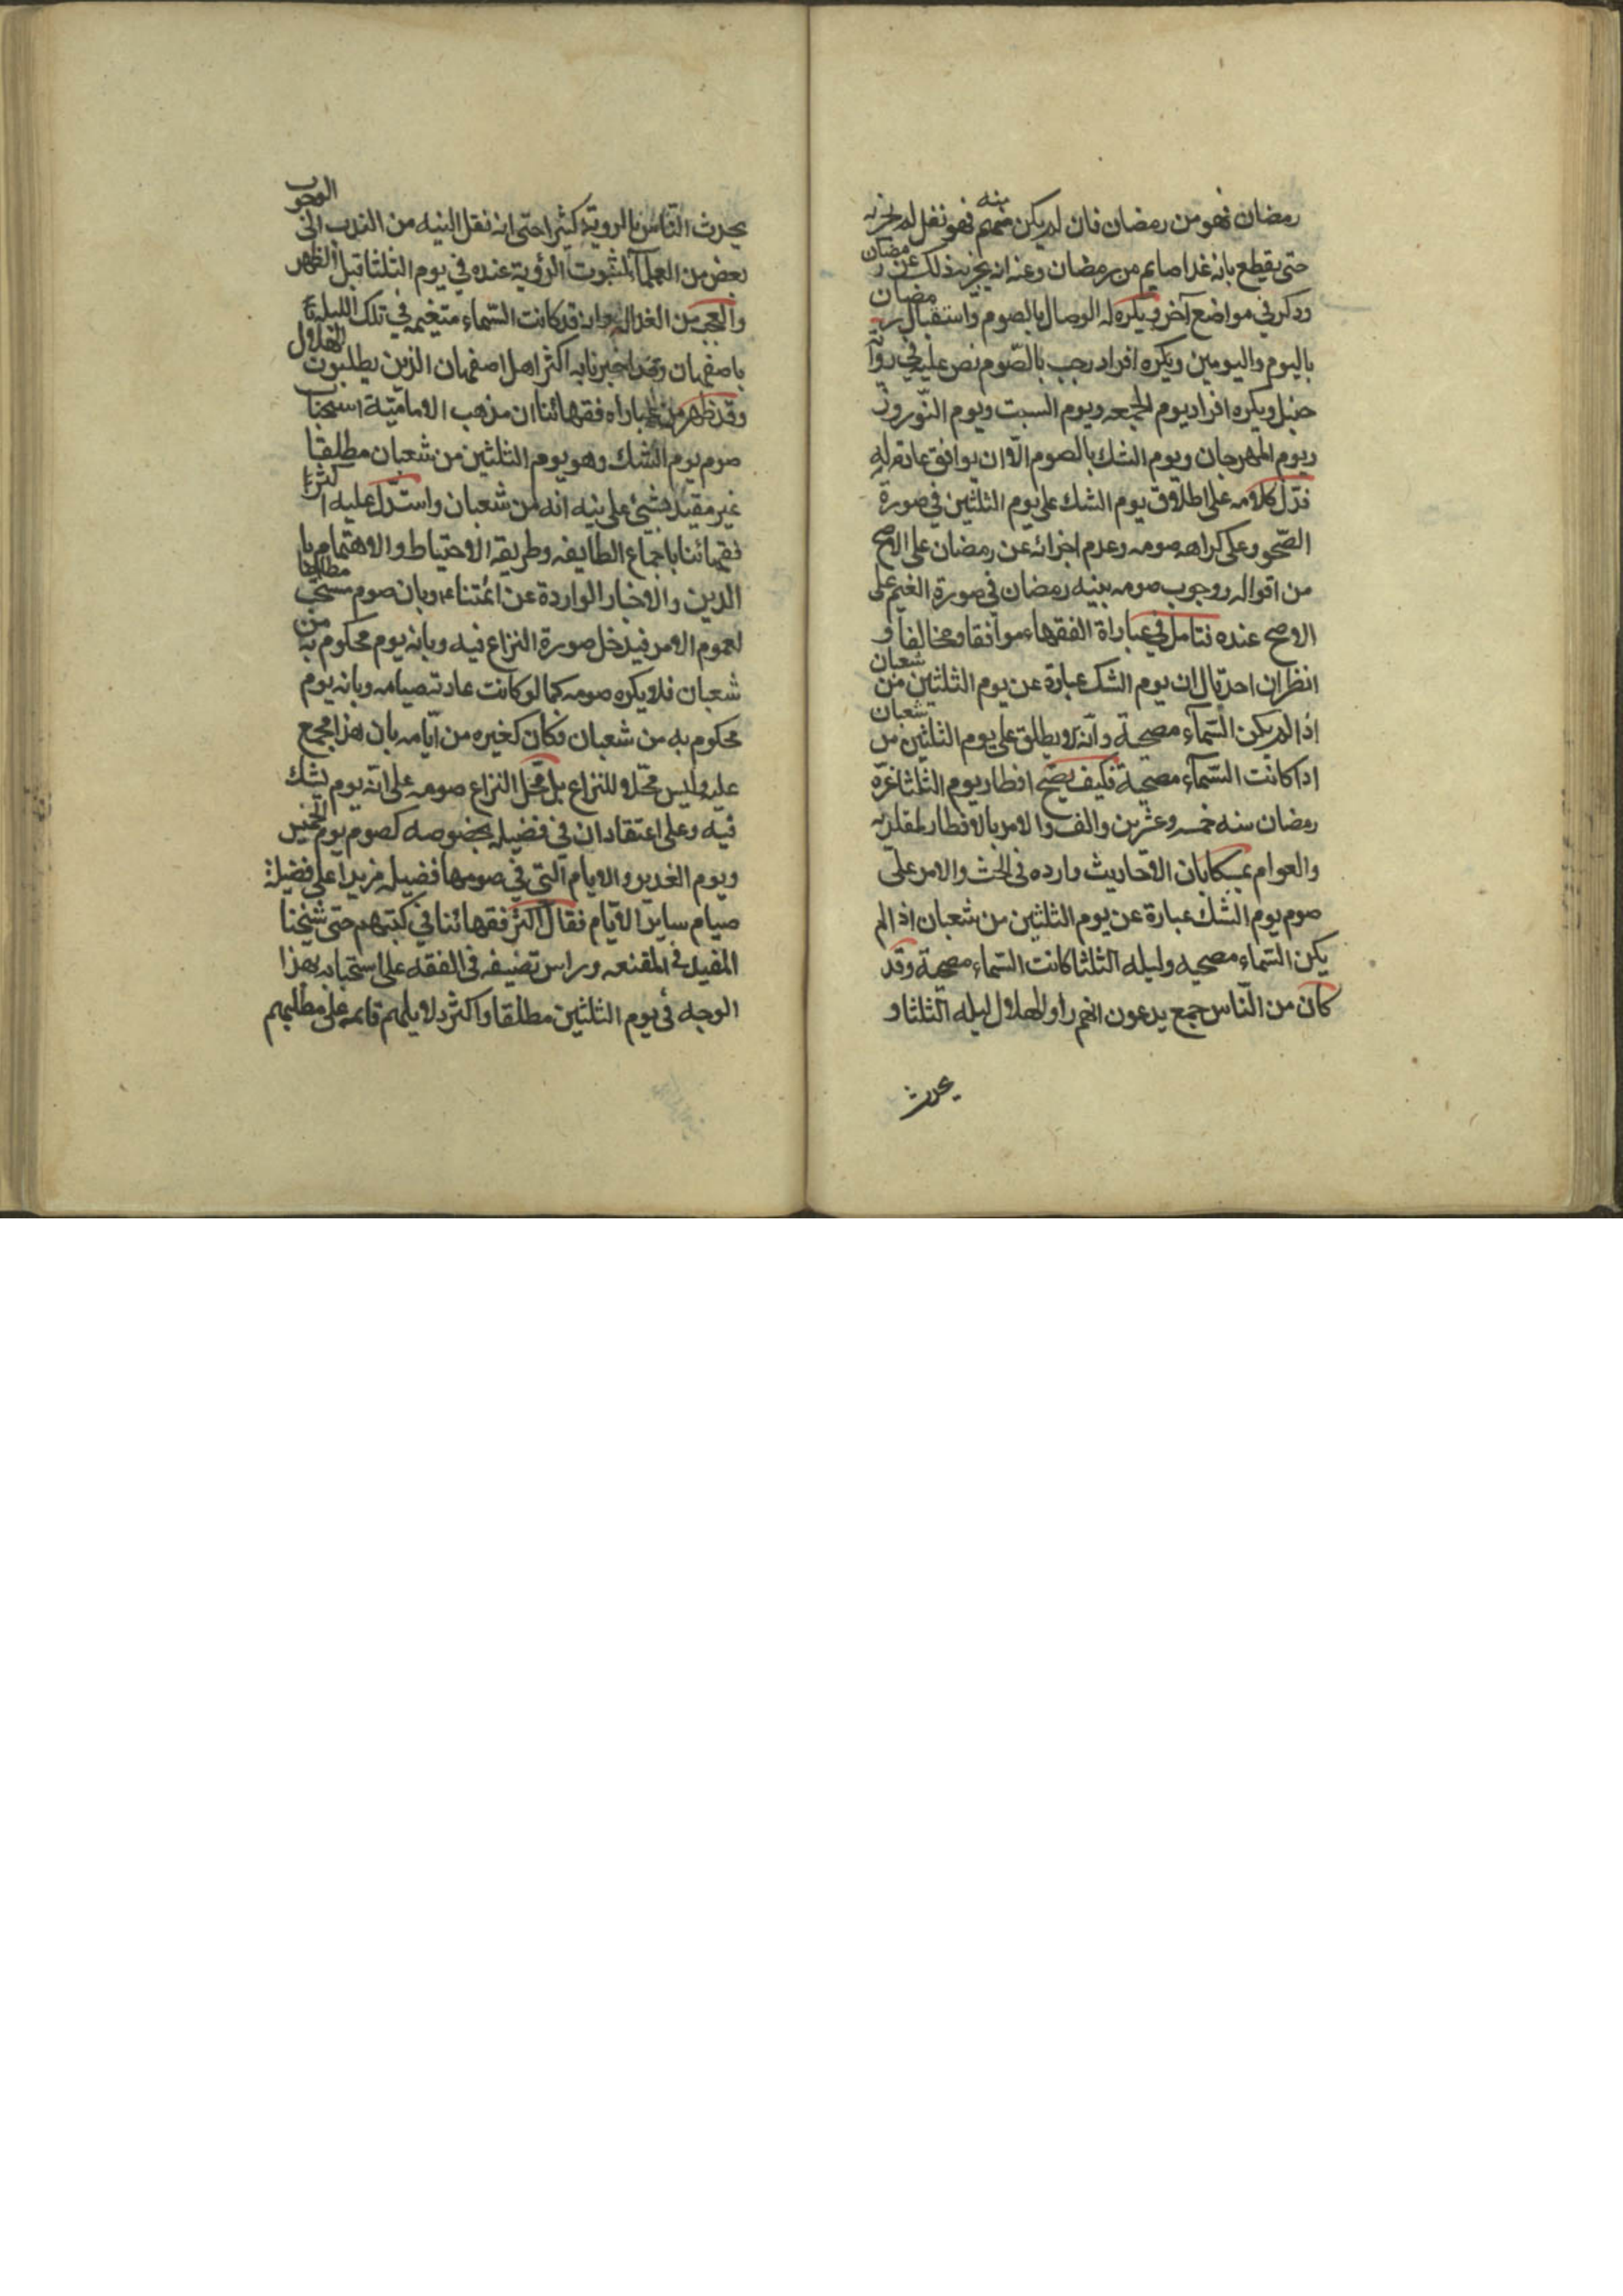 رمضان فهو من رمضان فان لم يكن منه فهو نفل لم يجزيه
حتى يقطع بانه غدا صايم من رمضان وعنه انه يجزيه ذلك عن رمضان
وذكر في مواضع آخر ويكره له الوصال بالصوم واستقبال رمضان
باليوم واليومين ويكره افراد رجب بالصوم نص عليه في رواية
حنبل ويكره افراد يوم الجمعه ويوم السبت ويوم النوروز
ويوم المهرجان ويوم الشك بالصوم الا ان يوافق عادة له
فدل كلامه على اطلاق يوم الشك على يوم الثلثين في صورة
الصحو وعلى كراهه صومه وعدم اجزائه عن رمضان على الاصح
من اقواله ووجوب صومه بنيه رمضان في صورة الغيم على
الاصح عنده فتامل في عباراة الفقهاء موافقا ومخالفا و
انظر ان احد قال ان يوم الشك عبارة عن يوم الثلثين من شعبان
اذا لم يكن السماء مصحية وانه لا يطلق على يوم الثلثين من شعبان
اذا كانت السماء مصحية فكيف يصح افطار يوم الثلثا غرة
رمضان سنه خمسه وعشرين والف والامر بالافطار لمقلديه
والعوام تمسكا بان الاحاديث وارده في الحث والامر على
صوم يوم الشك عبارة عن يوم الثلثين من شعبان اذا لم
يكن السماء مصحيه وليله الثلثا كانت السماء مصحية وقد
كان من الناس جمع يدعون انهم راوا الهلال ليله الثلثا و
يحدث
يحدث الناس بالروية كثيرا حتى انه نقل النيه من الندب الى الوجوب
بعض من العلماء لثبوت الرؤية عنده في يوم الثلثا قبل الظهر
والعجب من الغرال وانه قد كانت السماء متغيمه في تلك الليلة
باصفهان وقد اخبرنا به اكثر اهل اصفهان الذين يطلبون الهلال
وقد ظهر من عباراه فقهائنا ان مذهب الامامية استحباب
صوم يوم الشك وهو يوم الثلثين من شعبان مطلقا
غير مقيد بشئ على نيه انه من شعبان واستدل عليه اكثر
فقهائنا باجماع الطايفه وطريقه الاحتياط والاهتمام با
الدين والاخبار الواردة عن ائمتنا وبان صوم مستحب مطلقا
لعموم الامر فيدخل صورة النزاع فيه وبانه يوم محكوم به من
شعبان فلا يكره صومه كما لو كانت عادته صيامه وبانه يوم
محكوم به من شعبان فكان كغيره من ايامه بان هذا مجمع
عليه وليس محلا للنزاع بل محل النزاع صومه على انه يوم يشك
فيه وعلى اعتقاد ان في فضيله بخصوصه كصوم يوم الخميس
ويوم الغدير والايام التي في صومها فضيله مزيدا على فضيلة
صيام ساير الايام فقال اكثر فقهائنا في كتبهم حتى شيخنا
المفيد في المقنعه وراس تصنيفه في الفقه على استحبابه بهذا
الوجه في يوم الثلثين مطلقا واكثر دلايلهم قايمه على مطلبهم